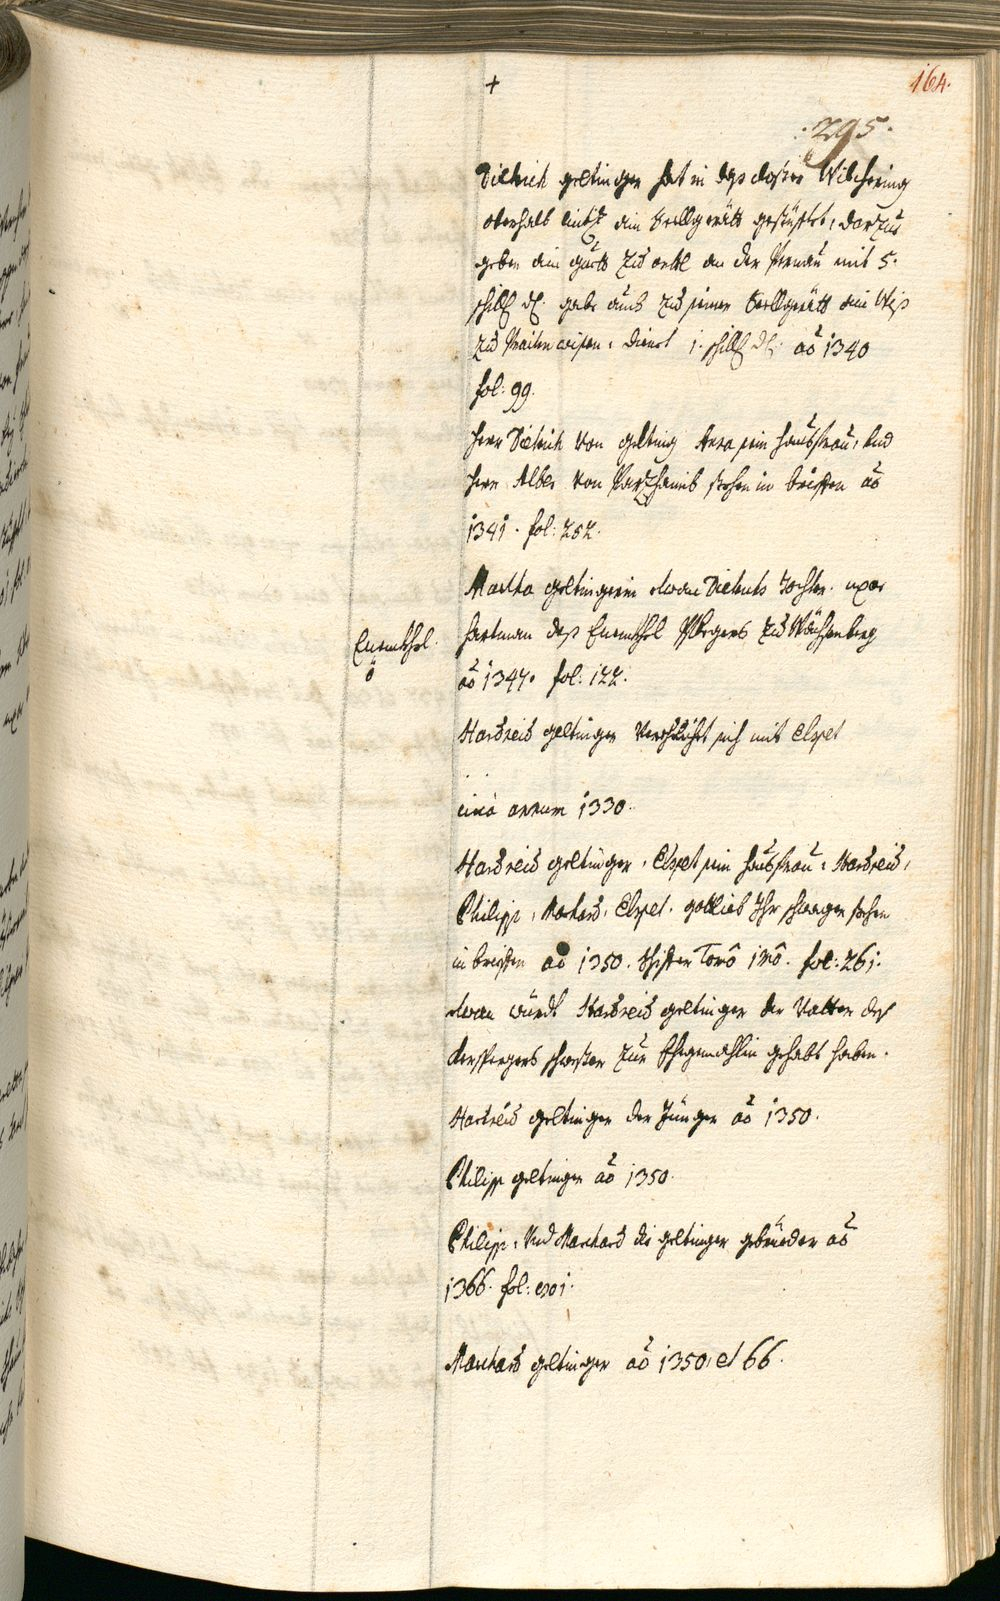 +
164.
.295.
Dietrich geltinger hat in das closter Wilhering
oberhalb lintz ain Seelgerätt gestüfftet, darzue
geben ain guett zu ortl an der Pramau mit 5.
schill dl. gabe auch zu seinem Seelgerätt ein Wiß
zu dient 1. schill dl. ao 1340
fol: 99.
Herr Dietrich von gelting Anna sein haußfrau, und
Herr Alber von Parzhamb stehen in brieffen ao
1341. fol: 252.
Martha geltingerin etwan Dietrichs Tochter. uxor
Enenkhel.
Hartman deß Enenkhel Pflegers zu Wächsenberg
ao 1347. fol: 122.
Hardneid geltinger verheüraht sich mit Elspet
. .
circa annum 1330.
Hardneid geltinger, Elspet sein haußfrau, Hardneid,
Philipp, Marchard, Elspet. gottlieb Ihr schwager stehen
in brieffen ao 1350. fol: 261.
etwan würdt Hardneid geltinger der Vatter deß
schwester zur Ehegemahlin gehabt haben.
Hardneid geltinger der Jünger ao 1350.
Philipp geltinger ao 1350.
Philipp, und Marchard die geltinger gebrüeder ao
1366. fol:
Marchard geltinger ao 1350, et 66.